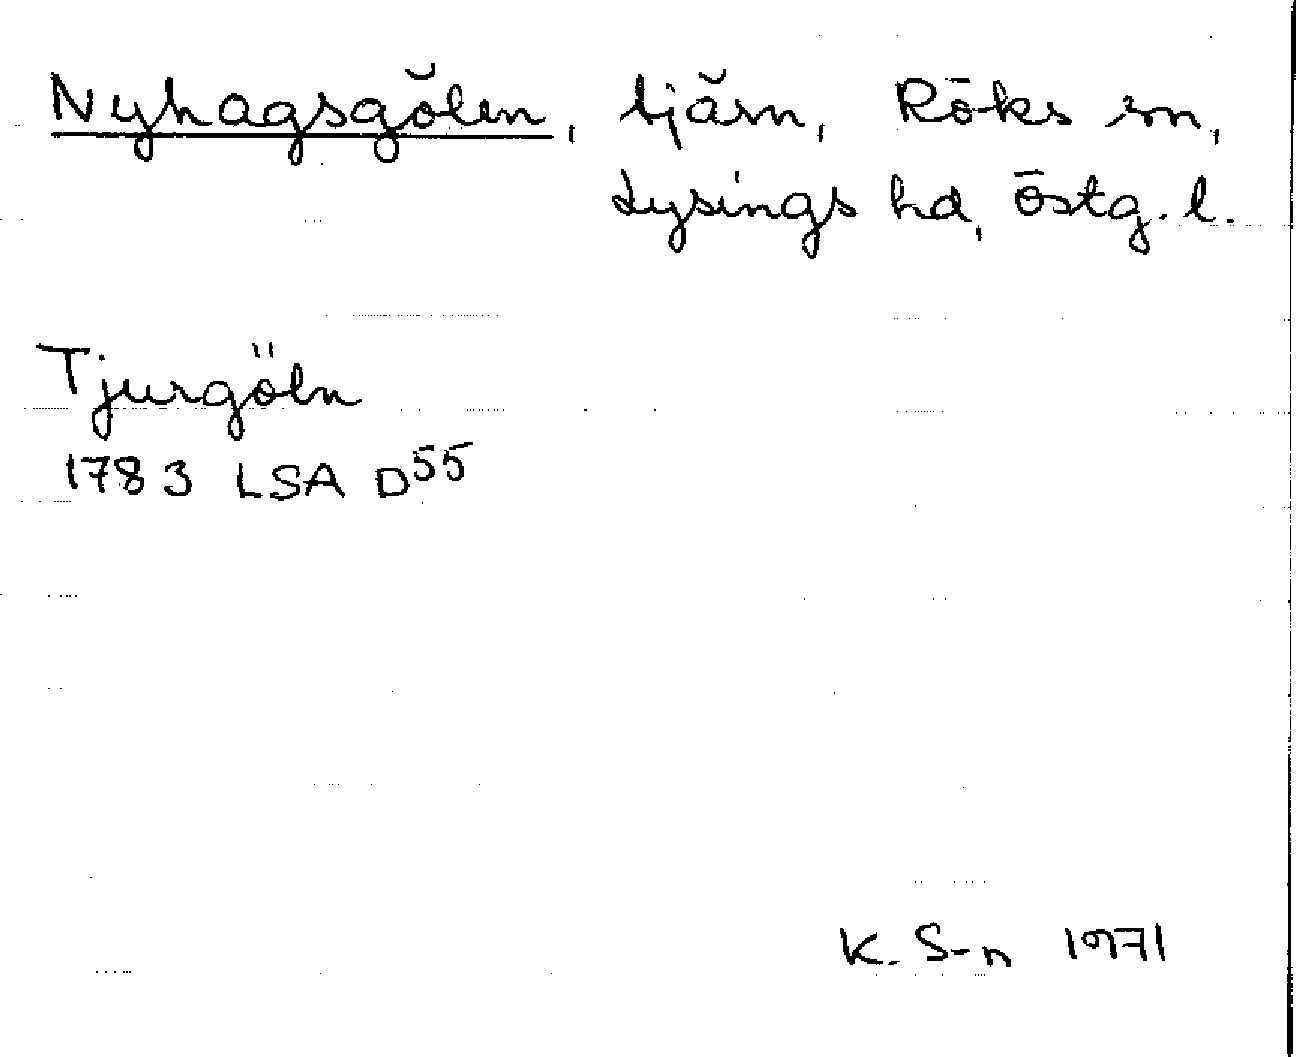 Nyhagsgölen, tjärn, Röks sn,
Lysings hd, Östg. l.
Tjurgöln
1783 LSA D55
K. S-n 1971